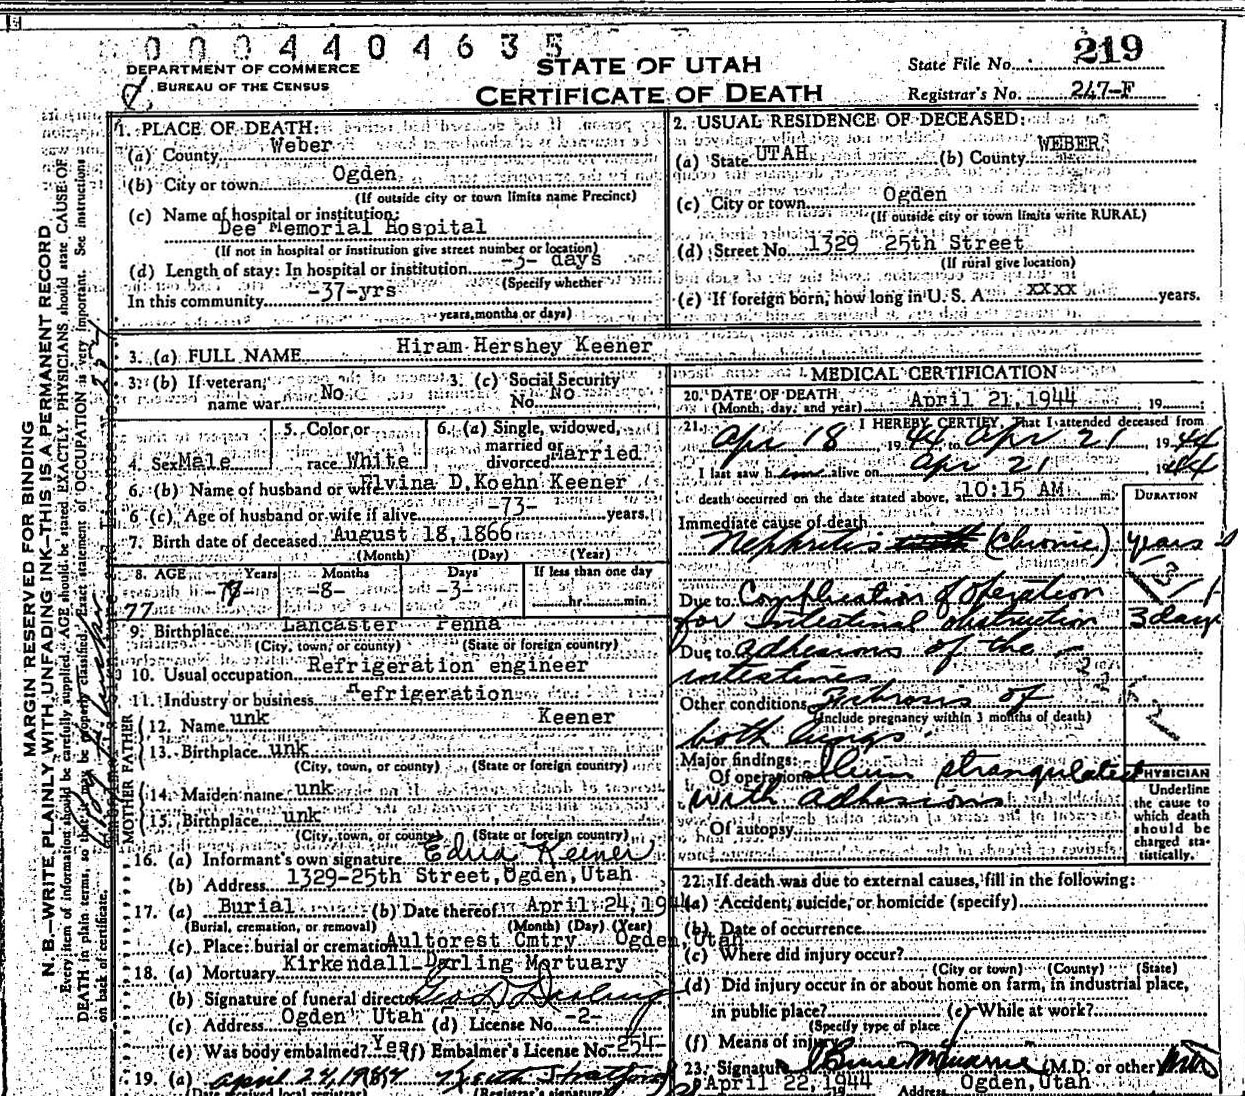 0 0 0 4 4 0 4 6 3 5
DEPARTMENT OF COMMERCE
BUREAU OF THE CENSUS
STATE OF UTAH
CERTIFICATE OF DEATH
State File No. 219
Registrar's No. 247-F
MARGIN RESERVED FOR BINDING
N. B.—WRITE PLAINLY, WITH UNFADING INK—THIS IS A PERMANENT RECORD
Every item of information should be carefully supplied. AGE should be stated EXACTLY. PHYSICIANS should state CAUSE OF
DEATH in plain terms, so that it may be properly classified. Exact statement of OCCUPATION is very important. See instructions
on back of certificate.
1. PLACE OF DEATH:
(a) County Weber
(b) City or town Ogden
(If outside city or town limits name Precinct)
(c) Name of hospital or institution:
Dee Memorial Hospital
(If not in hospital or institution give street number or location)
(d) Length of stay: In hospital or institution -3- days
(Specify whether
In this community -37-yrs
years, months or days)
2. USUAL RESIDENCE OF DECEASED:
(a) State UTAH (b) County WEBER
(c) City or town Ogden
(If outside city or town limits write RURAL)
(d) Street No. 1329 25th Street
(If rural give location)
(e) If foreign born, how long in U. S. A. xxxx years.
3. (a) FULL NAME Hiram Hershey Keener
3. (b) If veteran, name war No
3. (c) Social Security No. No
4. Sex Male
5. Color or race White
6. (a) Single, widowed, married or divorced Married
6. (b) Name of husband or wife Elvina D.Koehn Keener
6 (c) Age of husband or wife if alive -73- years.
7. Birth date of deceased August 18,1866
(Month) (Day) (Year)
8. AGE Years Months Days If less than one day
77 -8- -3- hr. min.
9. Birthplace Lancaster Penna
(City, town, or county) (State or foreign country)
10. Usual occupation Refrigeration engineer
11. Industry or business Refrigeration
FATHER
12. Name unk Keener
13. Birthplace unk
(City, town, or county) (State or foreign country)
MOTHER
14. Maiden name unk
15. Birthplace unk
(City, town, or county) (State or foreign country)
16. (a) Informant's own signature Edna Keener
(b) Address 1329-25th Street,Ogden,Utah
17. (a) Burial (b) Date thereof April 24,1944
(Burial, cremation, or removal) (Month) (Day) (Year)
(c) Place: burial or cremation Aultorest Cmtry Ogden,Utah
18. (a) Mortuary Kirkendall-Darling Mortuary
(b) Signature of funeral director
(c) Address Ogden Utah (d) License No. -2-
(e) Was body embalmed? Yes (f) Embalmer's License No. -254-
19. (a) April 24, 1944
(Date received local registrar) (Registrar's signature)
MEDICAL CERTIFICATION
20. DATE OF DEATH
(Month, day, and year) April 21,1944, 19
21. I HEREBY CERTIFY, That I attended deceased from
Apr 18, 1944 to Apr 21 1944
I last saw him alive on Apr 21 1944
death occurred on the date stated above, at 10:15 AM m.
DURATION
Immediate cause of death
Nephritis (Chronic) years
Due to Complication of Operation
for Intestinal obstruction 3 days
Due to adhesions of the
intestines
Other conditions Fibrosis of
(Include pregnancy within 3 months of death)
both lungs.
Major findings:
Of operations Ilium strangulated
with adhesions
Of autopsy
PHYSICIAN
Underline
the cause to
which death
should be
charged sta-
tistically.
22. If death was due to external causes, fill in the following:
(a) Accident, suicide, or homicide (specify)
(b) Date of occurrence
(c) Where did injury occur?
(City or town) (County) (State)
(d) Did injury occur in or about home on farm, in industrial place,
in public place? (e) While at work?
(Specify type of place
(f) Means of injury
23. Signature (M.D. or other) MD
April 22,1944 19 Address Ogden,Utah